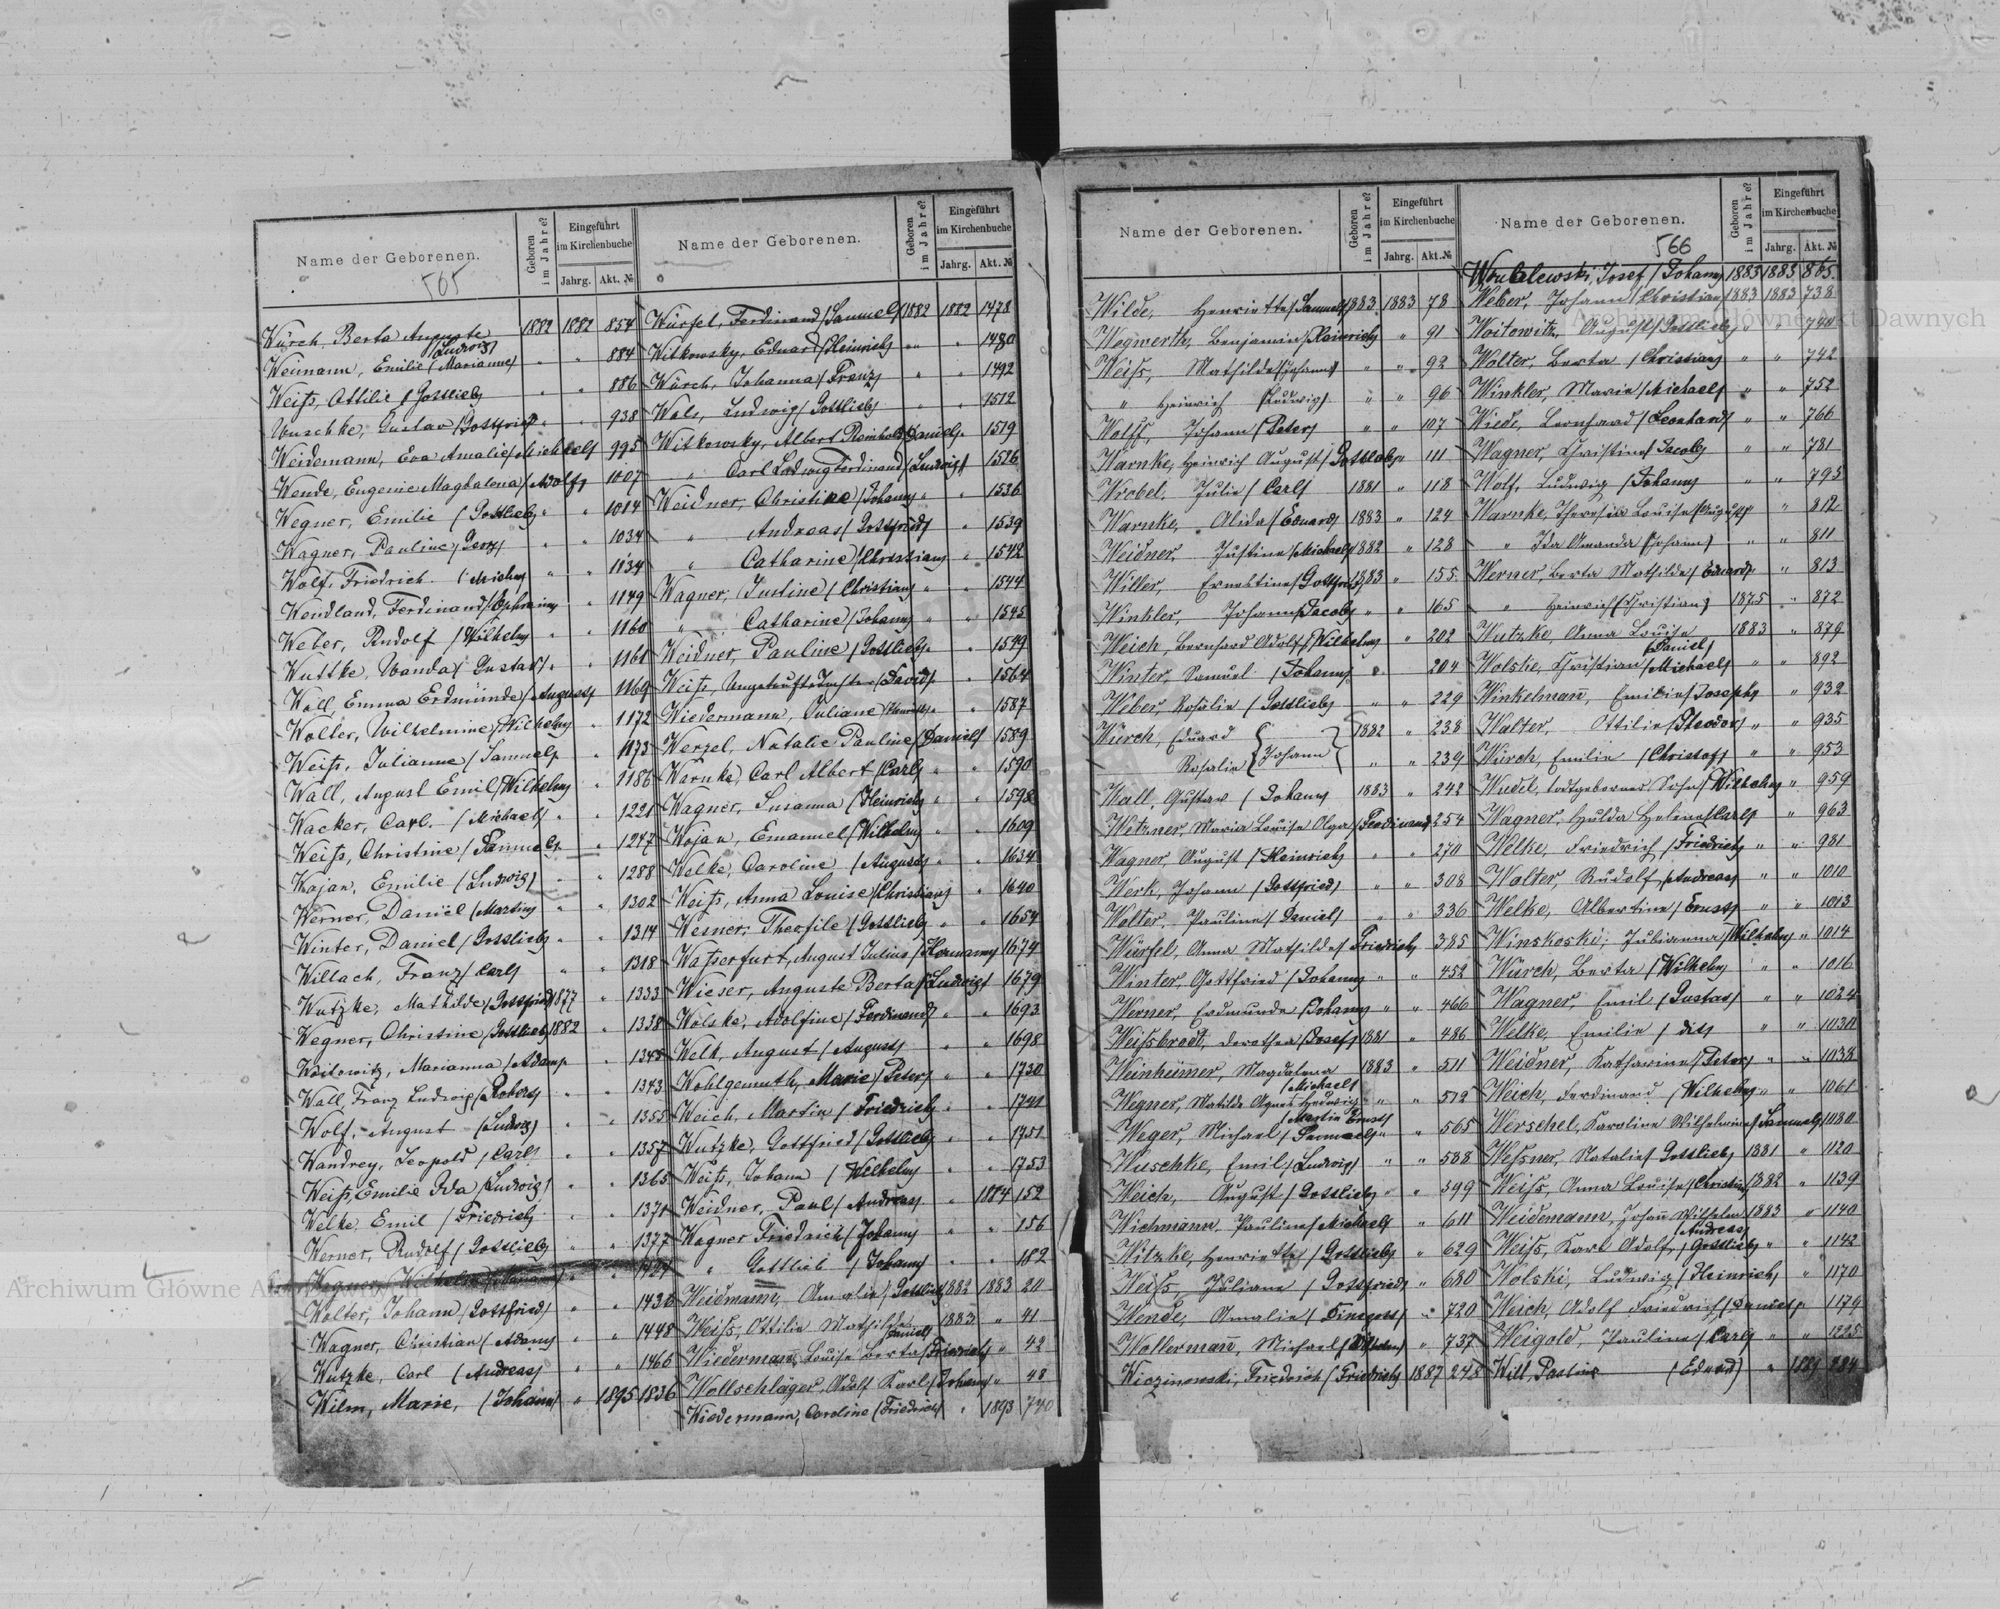 Name der Geborenen.
Geboren im Jahre?
Eingeführt im Kirchenbuche
Jahrg. Akt. №
565
Würch, Berta Auguste (Ludwig) 1882 1882 854
Weimann, Emilie (Marianne) " " 884
Weiß, Ottilie (Gottlieb) " " 886
Wuschke, Gustav (Gottfried) " " 938
Weidemann, Eva Amalie (Michael) 995
Wende, Eugenie Magdalena (Adolf) 1007
Wegner, Emilie (Gottlieb) " " 1014
Wagner, Pauline 1034
Wolf, Friedrich " " 1134
Wendland, Ferdinand (Ephraim) " 1149
Weber, Rudolf (Wilhelm) " " 1160
Wuttke, Wanda (Gustav) " " 1161
Woll, Emma Erdmunde (August) 1169
Wolter, Wilhelmine (Wilhelm) " 1172
Weiß, Julianne (Samuel) " 1173
Wall, August Emil (Wilhelm) " 1186
Wacker, Carl. (Michael) " " 1221
Weiß, Christine (Samuel) " 1247
Wajan, Emilie (Ludwig) " " 1288
Werner, Daniel (Martin) " " 1302
Winter, Daniel (Gottlieb) " " 1314
Willach, Franz (Carl) " " 1318
Wutzke, Mathilde (Gottfried) 1877 " 1333
Wegner, Christine (Gottlieb) 1882 " 1338
Woitowitz, Marianna (Adam) " "
Wall, Franz Ludwig (Robert) " " 1343
Wolf, August (Ludwig) " " 1355
Wandrey, Leopold (Carl) " " 1357
Weiß, Emilie Ida (Ludwig) " " 1365
Welke, Emil (Friedrich) " " 1371
Werner, Rudolf (Gottlieb) " " 1377
Wegner, Wilhelm
Wolter, Johann (Gottfried) " " 1436
Wagner, Christian (Adam) " " 1448
Wutzke, Carl (Andreas) " " 1466
Wilm, Marie, (Johann) " 1895 1836
Name der Geborenen.
Geboren im Jahre?
Eingeführt im Kirchenbuche
Jahrg. Akt. №
Würfel, Ferdinand (Samuel) 1882 1882 1478
Witkowsky, Eduard (Heinrich) " " 1480
Würch, Johanna (Franz) " " 1492
Wals, Ludwig (Gottlieb) " " 1512
Witkowsky, Albert Reinhold (Daniel) " 1519
" Carl Ludwig Ferdinand (Ludwig) 1526
Weidner, Christine (Johann) " " 1536
" Andreas (Gottfried) " 1539
" Catharine (Christian) " 1542
Wagner, Justine (Christian) " " 1544
" Catharine (Johann) " " 1545
Weidner, Pauline (Gottlieb) " " 1549
Weiß, Ungetaufte Tochter (David) " 1564
Wiedermann, Juliane (Heinrich) " " 1587
Wenzel, Natalie Pauline (Daniel) 1589
Warnke, Carl Albert (Carl) " " 1590
Wagner, Susanna (Heinrich) " " 1598
Wojan, Emanuel (Wilhelm) " " 1609
Welke, Caroline (August) " " 1634
Weiß, Anna Louise (Christian) " 1640
Wesner, Theofile (Gottlieb) " " 1654
Waßerfurt, August Julius (Hermann) 1674
Wieser, Auguste Berta (Ludwig) 1679
Wolske, Adolfine (Ferdinand) " " 1693
Welk, August (August) " " 1698
Wohlgemuth, Marie (Peter) " " 1730
Weich, Martin (Friedrich) " " 1741
Wutzke, Gottfried (Gottlieb) " " 1751
Weiß, Johann (Wilhelm) " " 1753
Weidner, Paul (Andreas) " 1884 152
Wagner Friedrich (Johann) " " 156
" Gottlieb (Johann) " " 182
Weidmann, Amalie (Gottlieb) 1882 1883 20
Weiß, Ottilie Mathilde (Daniel) 1883 " 41
Wiedermann, Louise Berta (Friedrich) " 42
Wollschläger, Adolf Karl (Johann) " 48
Wiedermann, Caroline (Friedrich) " 1893 740
Name der Geborenen.
Geboren im Jahre?
Eingeführt im Kirchenbuche
Jahrg. Akt. №
Wilde, Henriette (Samuel) 1883 1883 78
Wegwerth, Benjamin (Heinrich) " 91
Weiß, Mathilde (Johann) " " 92
" Heinrich (Ludwig) " " 96
Wolff, Johann (Peter) " " 107
Warnke, Heinrich August (Gottlob) " 111
Wrobel, Julie (Carl) 1881 " 118
Warnke, Alida (Eduard) 1883 " 124
Weidner, Justine (Michael) 1882 " 128
Willer, Ernestine (Gottfried) 1883 " 155
Winkler, Johann (Jacob) " " 165
Weich, Bernhard Adolf (Wilhelm) " 202
Winter, Samuel (Johann) " " 204
Weber, Rosalie (Gottlieb) " " 229
Würch, Eduard 1882 " 238
Rosalie {Johann} " " 239
Wall, Gustav (Johann) 1883 " 242
Wetzner, Maria Louise Olga (Ferdinand) 254
Wagner, August (Heinrich) " " 270
Werk, Johann (Gottfried) " " 308
Wolter, Pauline (Daniel) " " 336
Würfel, Anna Mathilde (Friedrich) 385
Winter, Gottfried (Johann) " " 452
Werner, Erdmunde (Johann) " " 466
Weissbrodt, Dorothea (Josef) 1881 " 486
Weinheimer, Magdalena (Michael) 1883 " 511
Wegner, Matilde Agnes Hedwig (Martin Ernst) " " 512
Weger, Michael (Samuel) " " 565
Wuschke, Emil (Ludwig) " " 588
Weich, August (Gottlieb) " " 599
Wichmann, Pauline (Michael) " 611
Witzke, Henriette (Gottlieb) " 629
Weiß, Juliane (Gottfried) " 680
Wende, Amalie " 720
Wollermann, Michael " 737
Wiczinowski, Friedrich (Friedrich) 1887 245
Name der Geborenen.
Geboren im Jahre?
Eingeführt im Kirchenbuche
Jahrg. Akt. №
566
Josef (Johann) 1883 1883 865
Weber, Johann (Christian) 1883 1883 738
Woitowitz, August (Gottlieb) " " 740
Wolter, Berta (Christian) " " 742
Winkler, Marie (Michael) " " 752
Wiede, Bernhard (Leonhard) " " 766
Wagner, Christine (Jacob) " " 781
Wolf, Ludwig (Johann) " " 795
Warnke, Theresia Louise (August) " 812
" Ida Amanda (Johann) " " 811
Werner Berta Mathilde (Eduard) " 813
" Heinrich (Christian) 1875 " 872
Wutzke, Anna Louise (Daniel) 1883 " 879
Wolske, Christian (Michael) " " 892
Winkelmann, Emilie (Joseph) " 932
Walter, Ottilie (Theodor) " " 935
Würch, Emilie (Christof) " " 953
Wudel, todtgeborner Sohn (Wilhelm) " 959
Wagner, Hulda Helene (Carl) " 963
Welke, Friedrich (Friedrich) " " 981
Walter, Rudolf (Andreas) " " 1010
Welke, Albertine (Ernst) " " 1013
Winskoski, Julianna (Wilhelm) " 1014
Würch, Berta (Wilhelm) " " 1016
Wagner, Emil (Gustav) " " 1024
Welke, Emilie (dito) " "
Weidner, Katharine (Peter) " " 1038
Weich, Ferdinand (Wilhelm) " " 1061
Werschel, Karoline Wilhelmine (Samuel) 1080
Wessner, Natalie (Gottlieb) 1881 " 1120
Weiß, Anna Louise (Christian) 1882 " 1139
Weidemann, Johann Wilhelm (Andreas) 1883 " 1140
Weiß, Karl Adolf (Gottlieb) " " 1142
Wolski, Ludwig (Heinrich) " 1170
Weich, Adolf Friedrich (Daniel) " 1179
Weigold, Pauline (Carl) " " 1225
Will, Pauline (Eduard) "
Archiwum Główne Akt Dawnych
Archiwum Główne Akt Dawnych